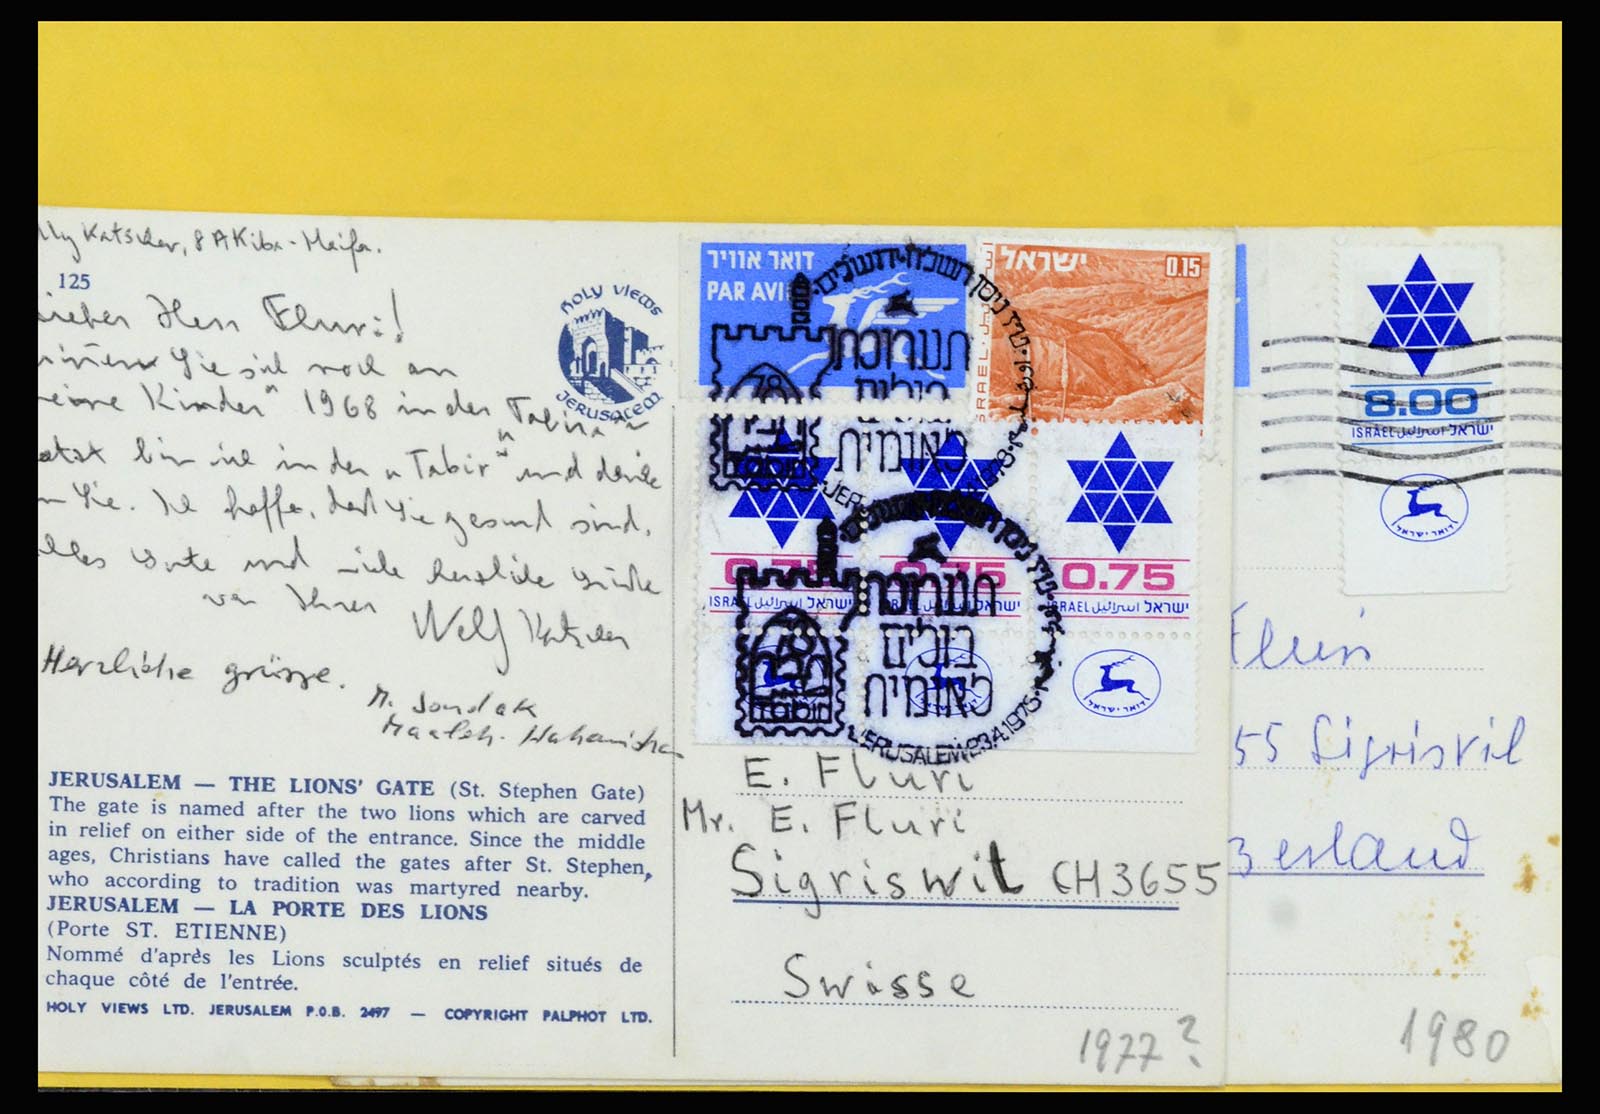 Katscher, 8 Akiba - Haifa.
125
HOLY VIEWS
JERUSALEM
Herr Fluri!
Sie sich noch an
Kinder" 1968 in der "Tabira"
bin ich in der "Tabir" und denke
Sie. Ich hoffe, daß Sie gesund sind.
Gute und viele herzliche Grüße
von Ihrem
Welf Katscher
Herzliche grüsse.
JERUSALEM — THE LIONS' GATE (St. Stephen Gate)
The gate is named after the two lions which are carved
in relief on either side of the entrance. Since the middle
ages, Christians have called the gates after St. Stephen,
who according to tradition was martyred nearby.
JERUSALEM — LA PORTE DES LIONS
(Porte ST. ETIENNE)
Nommé d'après les Lions sculptés en relief situés de
chaque côté de l'entrée.
HOLY VIEWS LTD. JERUSALEM P.O.B. 2497 — COPYRIGHT PALPHOT LTD.
דואר אוויר
PAR AVI
ישראל
0.15
תערוכת
בולים
לאומית
0.75
0.75
0.75
ISRAEL اسرائيل ישראל
ISRAEL اسرائيل ישראל
תערוכת
בולים
לאומית
Tabir
JERUSALEM
דואר ישראל
E. Fluri
Mr. E. Fluri
Sigriswil CH 3655
Swisse
1977?
8.00
ISRAEL اسرائيل ישראל
דואר ישראל
Fluri
55 Sigriswil
1980